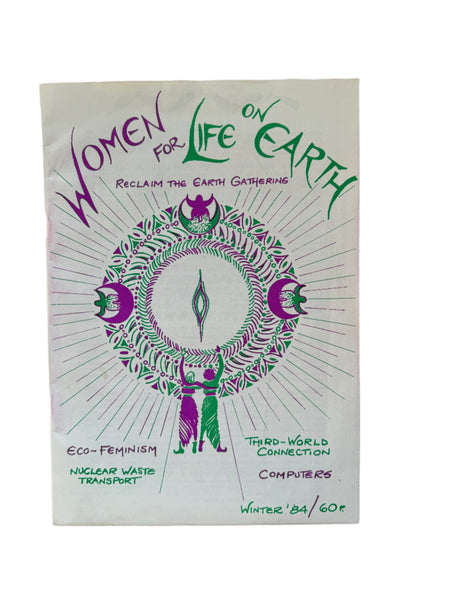 WOMEN FOR LIFE ON EARTH
RECLAIM THE EARTH GATHERING
ECO~FEMINISM
NUCLEAR WASTE
TRANSPORT
THIRD-WORLD
CONNECTION
COMPUTERS
WINTER '84/60P.